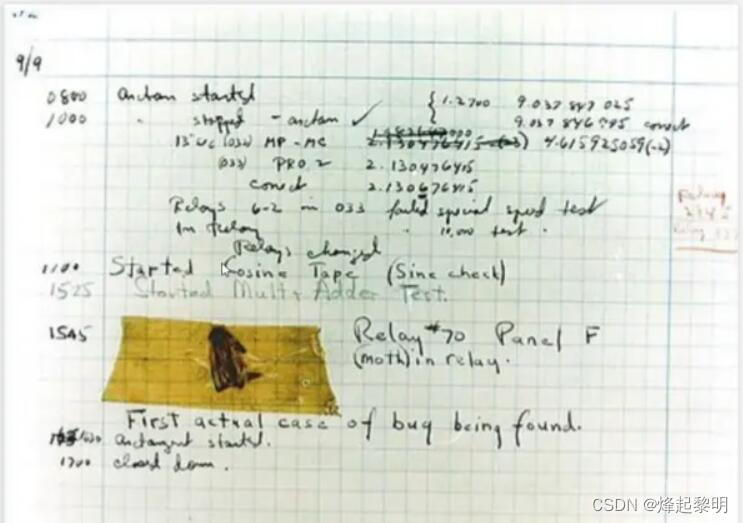 9/9
0800 Antan started
1000 " stopped - antan ✓ { 1.2700 9.037 847 025
9.037 846 995 correct
13" UC (032) MP - MC 2.130476415 4.615925059(-2)
(033) PRO.2 2.130476415
correct 2.130676415
Relays 6-2 in 033 failed special speed test
In Relay " 10,000 test "
Relay
2145
Relays changed
1100 Started Cosine Tape (Sine check)
1525 Started Mult + Adder Test.
1545 Relay #70 Panel F
(moth) in relay.
First actual case of bug being found.
1630 Antangent started.
1700 closed down.
CSDN @烽起黎明